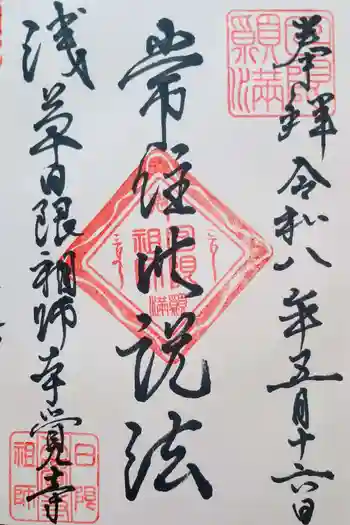 奉拝 令和八年五月十六日
常住此説法
浅草日限祖師 本覚寺
日限
祖師